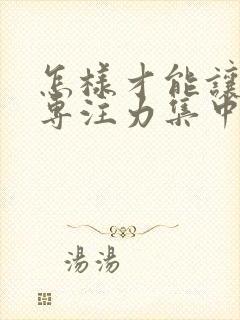 怎樣才能讓
專注力集中
湯湯